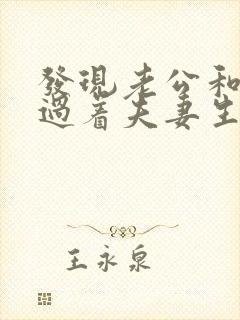 發現老公和
過着夫妻生
王永泉